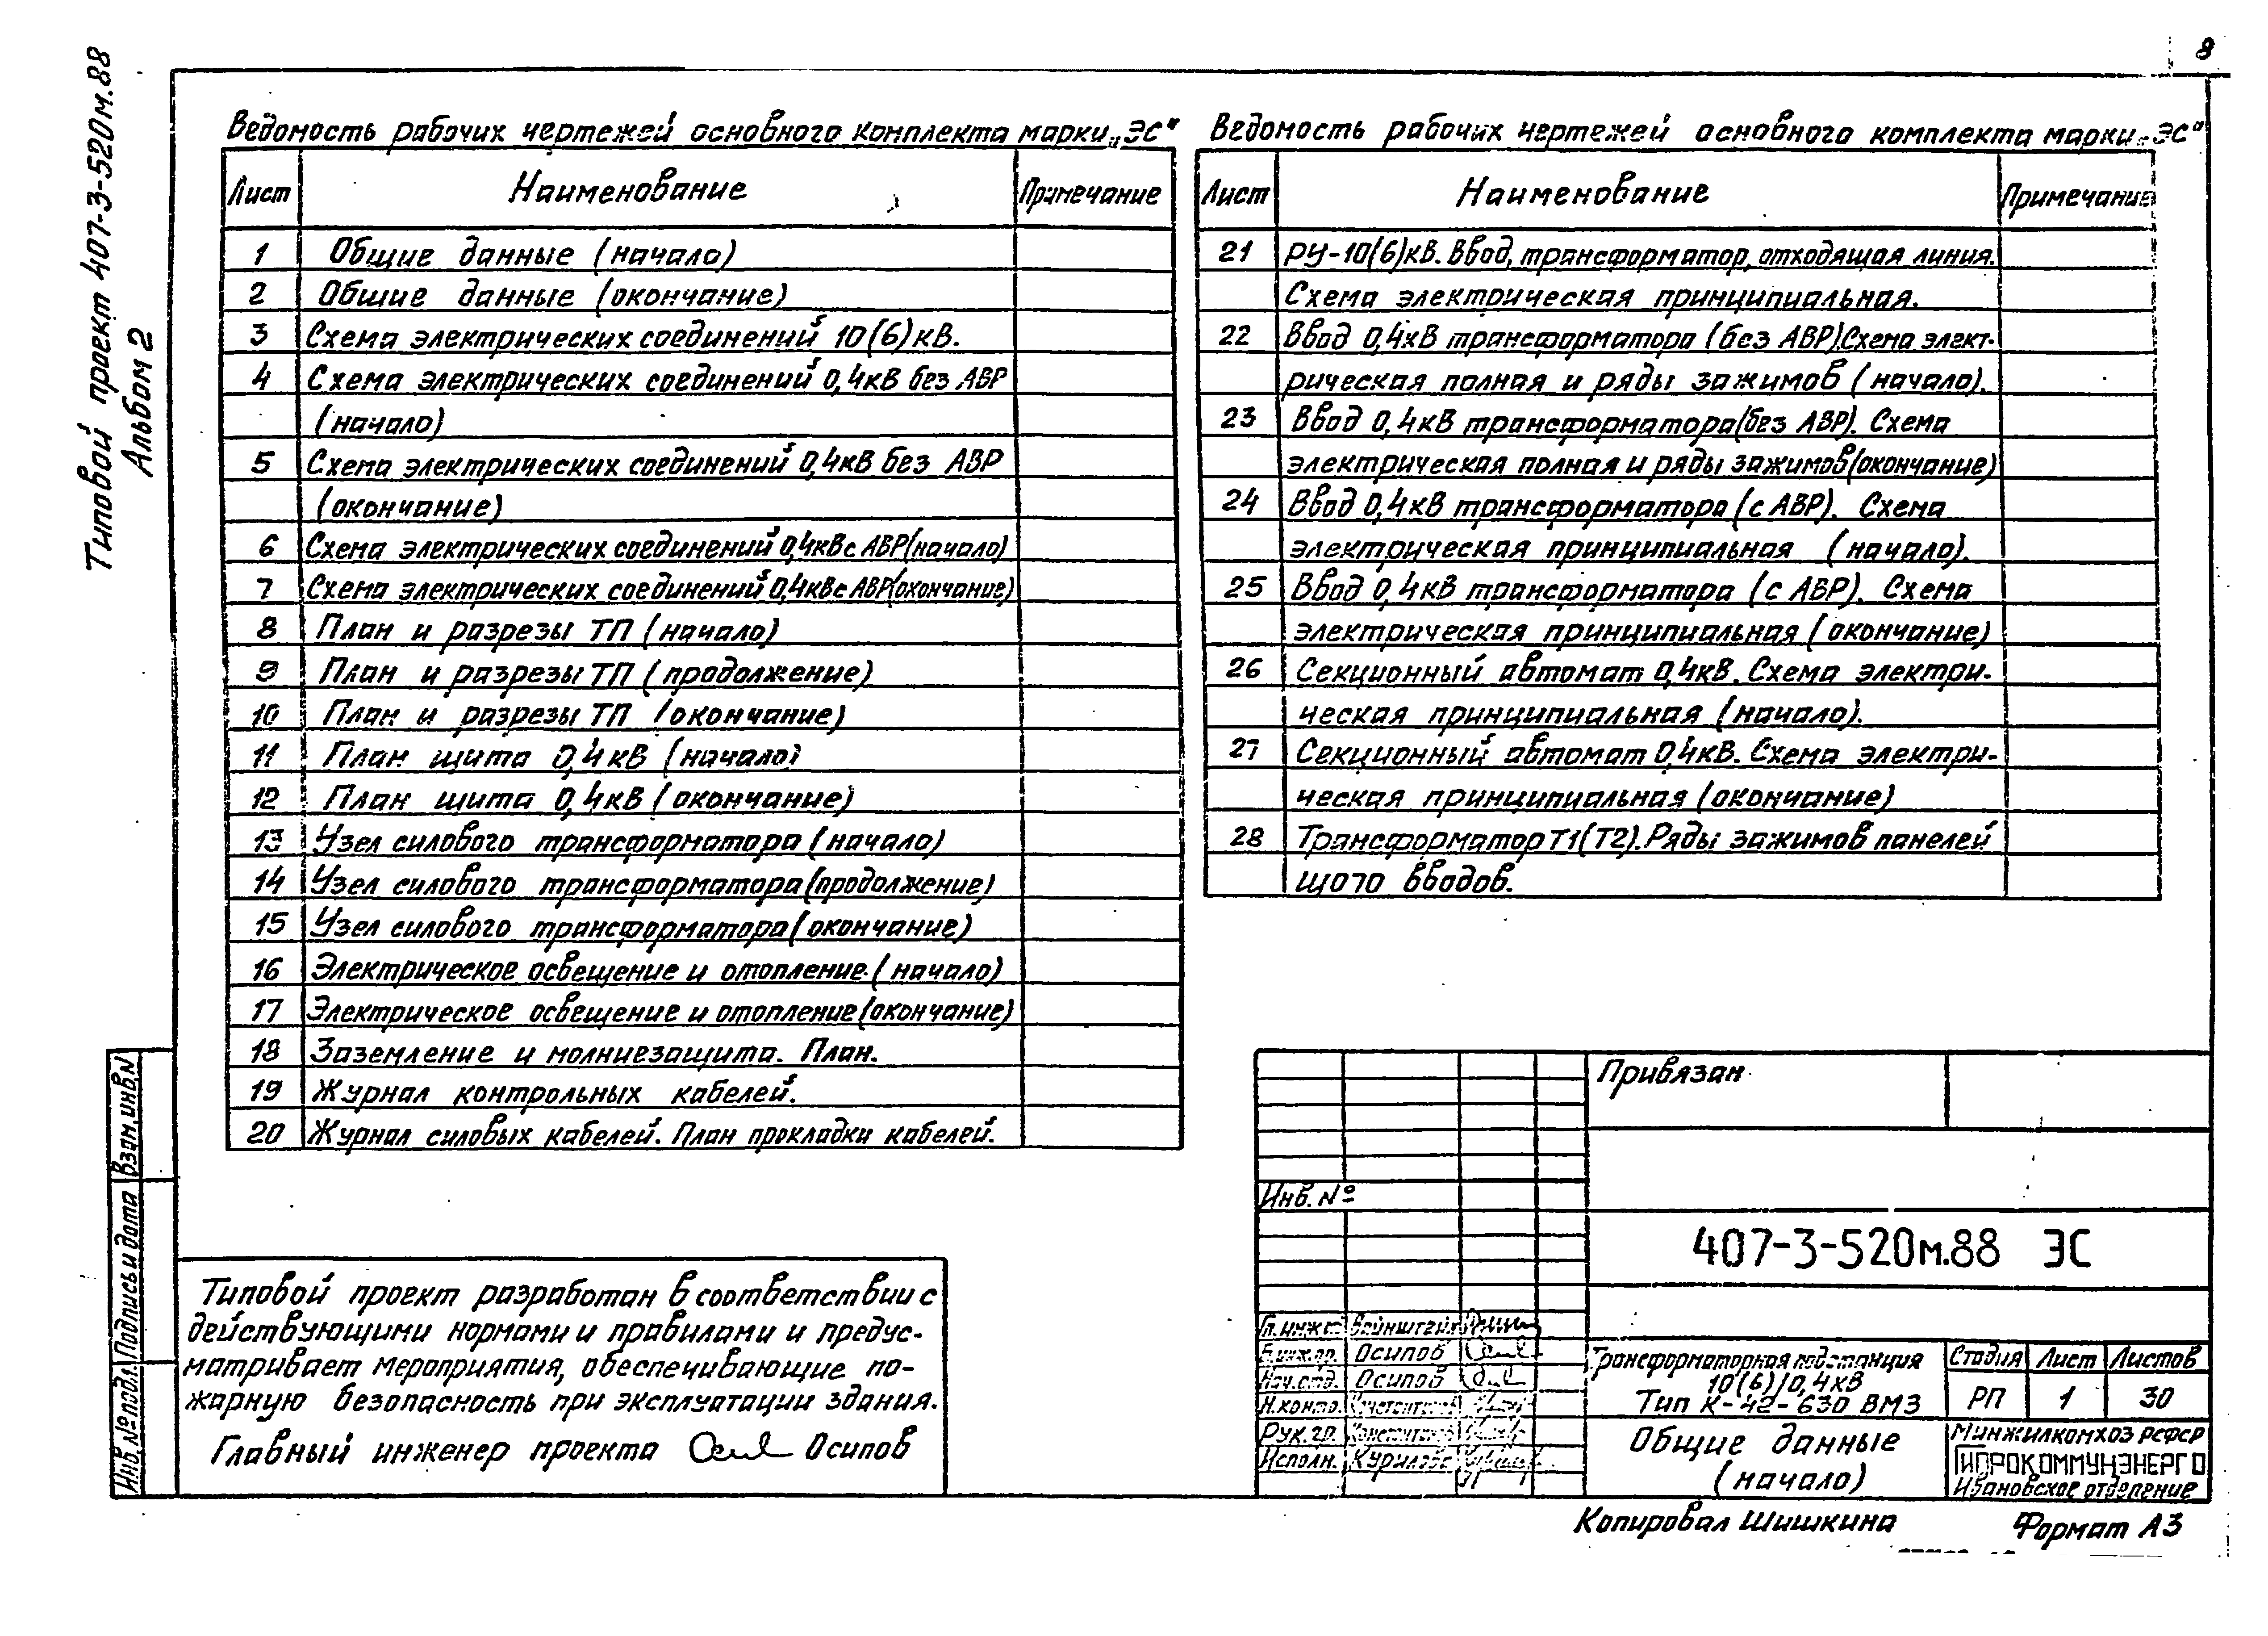 8
Типовой проект 407-3-520м.88
Альбом 2
Ведомость рабочих чертежей основного комплекта марки „ЭС"
Лист Наименование Примечание
1 Общие данные (начало)
2 Общие данные (окончание)
3 Схема электрических соединений 10(6)кВ.
4 Схема электрических соединений 0,4кВ без АВР
(начало)
5 Схема электрических соединений 0,4кВ без АВР
(окончание)
6 Схема электрических соединений 0,4кВ с АВР(начало)
7 Схема электрических соединений 0,4кВ с АВР(окончание)
8 План и разрезы ТП (начало)
9 План и разрезы ТП (продолжение)
10 План и разрезы ТП (окончание)
11 План щита 0,4кВ (начало)
12 План щита 0,4кВ (окончание)
13 Узел силового трансформатора (начало)
14 Узел силового трансформатора (продолжение)
15 Узел силового трансформатора (окончание)
16 Электрическое освещение и отопление (начало)
17 Электрическое освещение и отопление (окончание)
18 Заземление и молниезащита. План.
19 Журнал контрольных кабелей.
20 Журнал силовых кабелей. План прокладки кабелей.
Ведомость рабочих чертежей основного комплекта марки „ЭС"
Лист Наименование Примечание
21 РУ-10(6)кВ. Ввод, трансформатор, отходящая линия.
Схема электрическая принципиальная.
22 Ввод 0,4кВ трансформатора (без АВР). Схема элект-
рическая полная и ряды зажимов (начало).
23 Ввод 0,4кВ трансформатора (без АВР). Схема
электрическая полная и ряды зажимов (окончание)
24 Ввод 0,4кВ трансформатора (с АВР). Схема
электрическая принципиальная (начало).
25 Ввод 0,4кВ трансформатора (с АВР). Схема
электрическая принципиальная (окончание)
26 Секционный автомат 0,4кВ. Схема электри-
ческая принципиальная (начало).
27 Секционный автомат 0,4кВ. Схема электри-
ческая принципиальная (окончание)
28 Трансформатор Т1(Т2). Ряды зажимов панелей
щого вводов.
Типовой проект разработан в соответствии с
действующими нормами и правилами и предус-
матривает мероприятия, обеспечивающие по-
жарную безопасность при эксплуатации здания.
Главный инженер проекта Осипов
Взам.инв.N
Подпись и дата
Инв.№ подл.
Привязан
Инв.№
407-3-520м.88 ЭС
Гл.инж Вайнштейн
Осипов
Нач.отд. Осипов
Н.контр.
Рук.гр.
Исполн.
Трансформаторная подстанция
10(6)/0,4кВ
Тип К-42-630 ВМЗ
Стадия Лист Листов
РП 1 30
Общие данные
(начало)
Минжилкомхоз РСФСР
ГИПРОКОММУНЭНЕРГО
Ивановское отделение
Копировал Шишкина
Формат А3